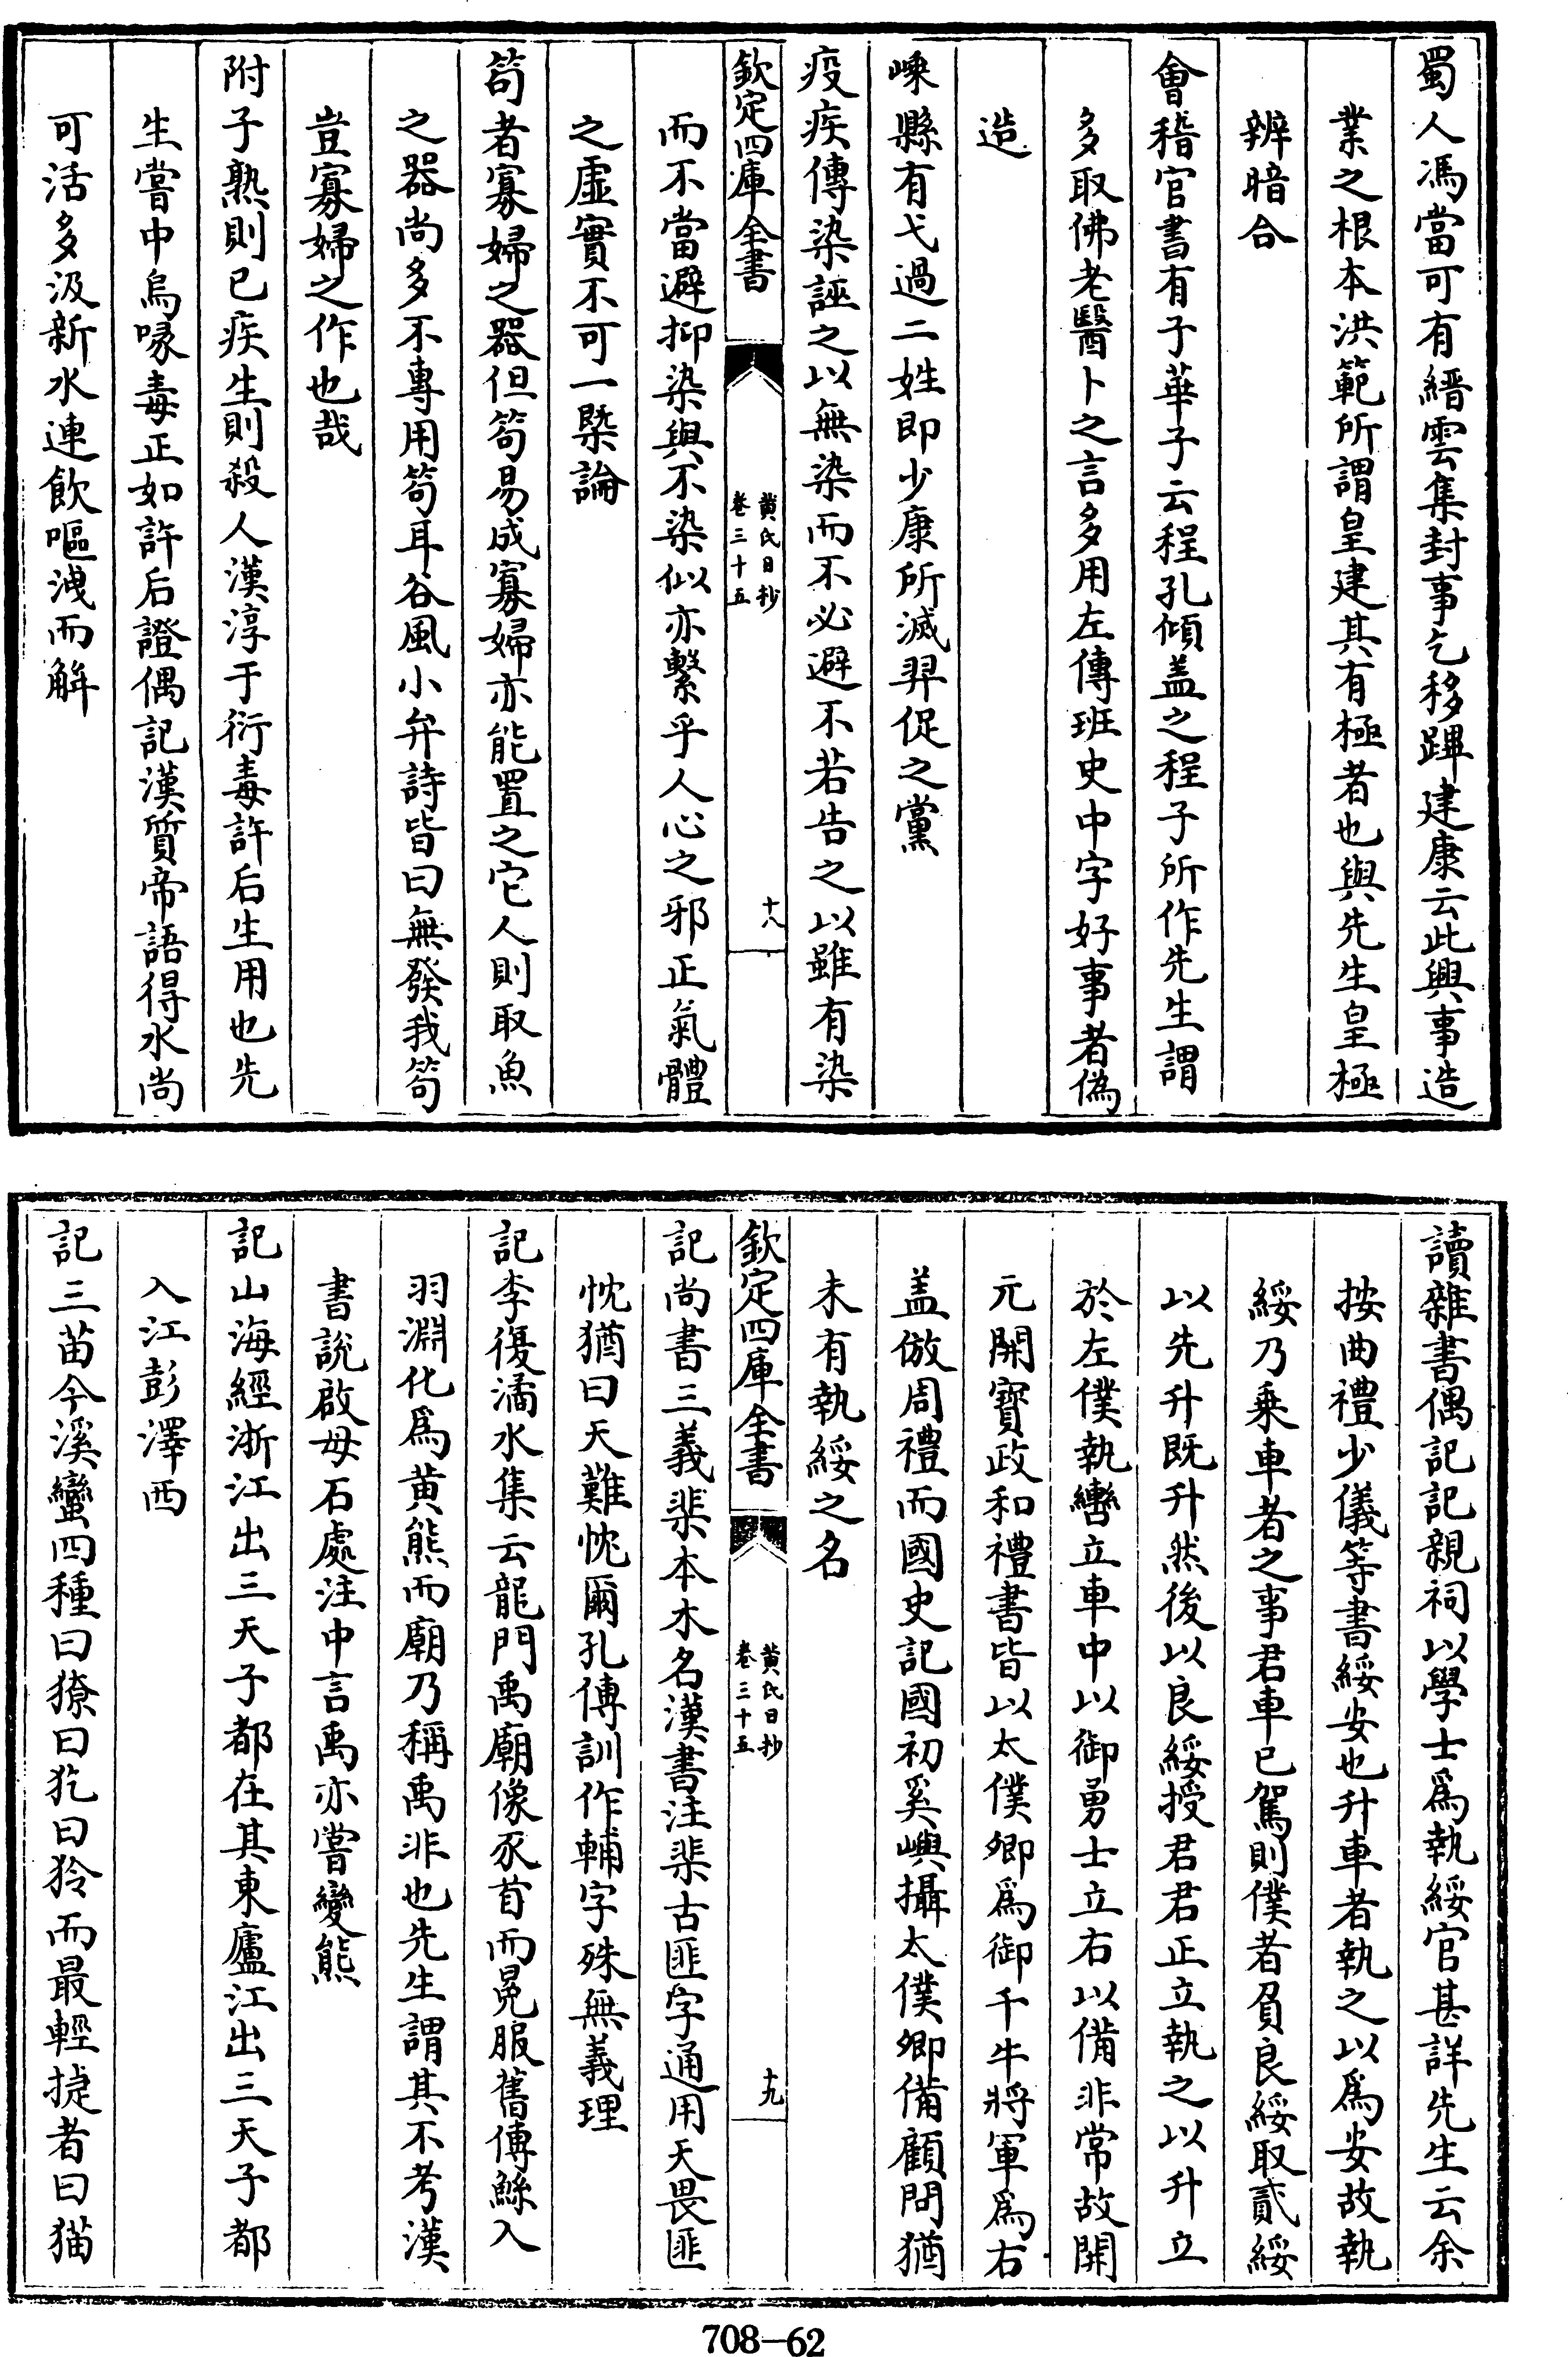 蜀人馮當可有縉雲集封事乞移蹕建康云此興事造
業之根本洪範所謂皇建其有極者也與先生皇極
辨暗合
會稽官書有子華子云程孔傾盖之程子所作先生謂
多取佛老醫卜之言多用左傳班史中字好事者偽
造
嵊縣有弋過二姓即少康所滅羿促之黨
疫疾傳染誣之以無染而不必避不若告之以雖有染
欽定四庫全書
黄氏日抄
卷三十五
十八
而不當避抑染與不染似亦繫乎人心之邪正氣體
之虛實不可一槩論
笱者寡婦之器但笱易成寡婦亦能置之它人則取魚
之器尚多不專用笱耳谷風小弁詩皆曰無發我笱
豈寡婦之作也哉
附子熟則已疾生則殺人漢淳于衍毒許后生用也先
生嘗中烏喙毒正如許后證偶記漢質帝語得水尚
可活多汲新水連飲嘔洩而解
讀雜書偶記記親祠以學士爲執綏官甚詳先生云余
按曲禮少儀等書綏安也升車者執之以爲安故執
綏乃乗車者之事君車已駕則僕者負良綏取貳綏
以先升既升然後以良綏授君君正立執之以升立
於左僕執轡立車中以御勇士立右以備非常故開
元開寶政和禮書皆以太僕卿爲御千牛將軍爲右
盖倣周禮而國史記國初奚嶼攝太僕卿備顧問猶
未有執綏之名
欽定四庫全書
黄氏日抄
卷三十五
十九
記尚書三義棐本木名漢書注棐古匪字通用天畏匪
忱猶曰天難忱爾孔傳訓作輔字殊無義理
記李復潏水集云龍門禹廟像豕首而冕服舊傳鯀入
羽淵化爲黄熊而廟乃稱禹非也先生謂其不考漢
書說啟母石處注中言禹亦嘗變熊
記山海經浙江出三天子都在其東廬江出三天子都
入江彭澤西
記三苗今溪蠻四種曰獠曰犵曰狑而最輕捷者曰猫
708-62